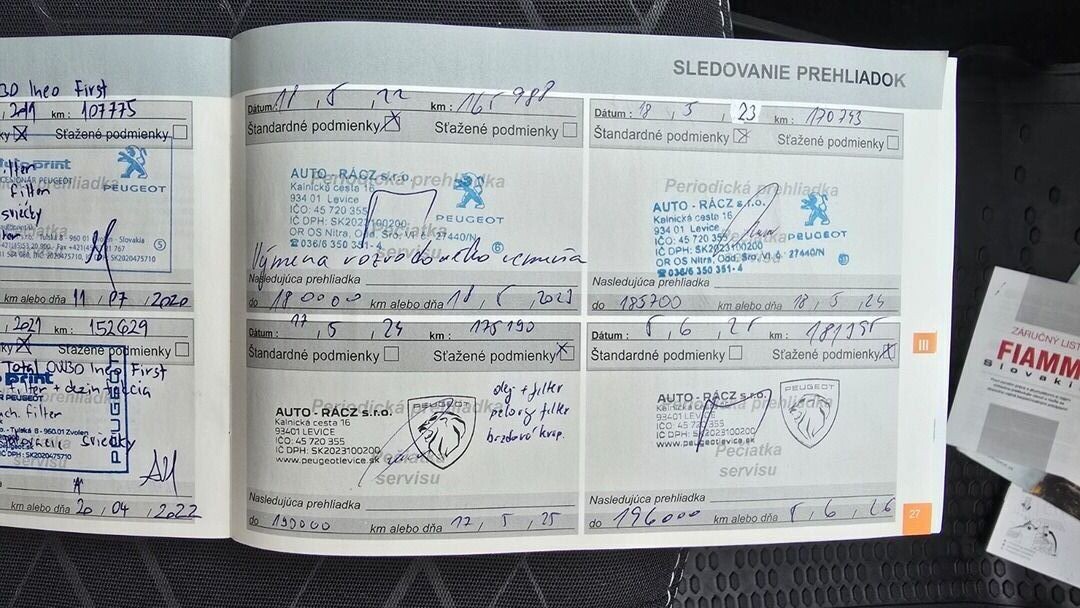 SLEDOVANIE PREHLIADOK
First
km : 107775
Sťažené podmienky
PEUGEOT
Tulska 8 - 960 01 Zvolen - Slovakia
km alebo dňa 11 , 07 , 2020
2021 km : 152629
Sťažené podmienky
Total
First
filter
PEUGEOT
Tulska 8 - 960.01 Zvolen
sviečky
IČ DPH: SK2020475710
km alebo dňa 20 , 04 , 2022
Dátum : 18 , 5 , 22 km : 165 988
Štandardné podmienky X Sťažené podmienky
Periodická prehliadka
AUTO - RÁCZ s.r.o.
Kalnická cesta 16
934 01 Levice
IČO: 45 720 355
IČ DPH: SK2023100200
OR OS Nitra, Odd. Sro, Vl. č. 27440/N
☎ 036/6 350 351-4
PEUGEOT
6
Pečiatka
servisu
Výmena rozvodového remeňa
Nasledujúca prehliadka
do 180000 km alebo dňa 18 , 5 , 2023
Dátum : 18 , 5 , 23 km : 170743
Štandardné podmienky X Sťažené podmienky
Periodická prehliadka
AUTO - RÁCZ s.r.o.
Kalnická cesta 16
934 01 Levice
IČO: 45 720 355
IČ DPH: SK2023100200
OR OS Nitra, Odd. Sro, Vl. č. 27440/N
☎ 036/6 350 351-4
PEUGEOT
servisu
Nasledujúca prehliadka
do 185700 km alebo dňa 18 , 5 , 24
Dátum : 17 , 5 , 24 km : 175190
Štandardné podmienky Sťažené podmienky X
Periodická prehliadka
AUTO - RÁCZ s.r.o.
Kalnická cesta 16
93401 LEVICE
IČO: 45 720 355
IČ DPH: SK2023100200
www.peugeotlevice.sk
PEUGEOT
olej + filter
pelový filter
brzdová kvap.
Pečiatka
servisu
Nasledujúca prehliadka
do 190000 km alebo dňa 17 , 5 , 25
Dátum : 5 , 6 , 25 km : 181195
Štandardné podmienky Sťažené podmienky X
Periodická prehliadka
AUTO - RÁCZ s.r.o.
Kalnická cesta 16
93401 LEVICE
IČO: 45 720 355
IČ DPH: SK2023100200
www.peugeotlevice.sk
PEUGEOT
Pečiatka
servisu
Nasledujúca prehliadka
do 196000 km alebo dňa 5 , 6 , 26
III
27
ZÁRUČNÝ LIST
FIAMM
slovaki